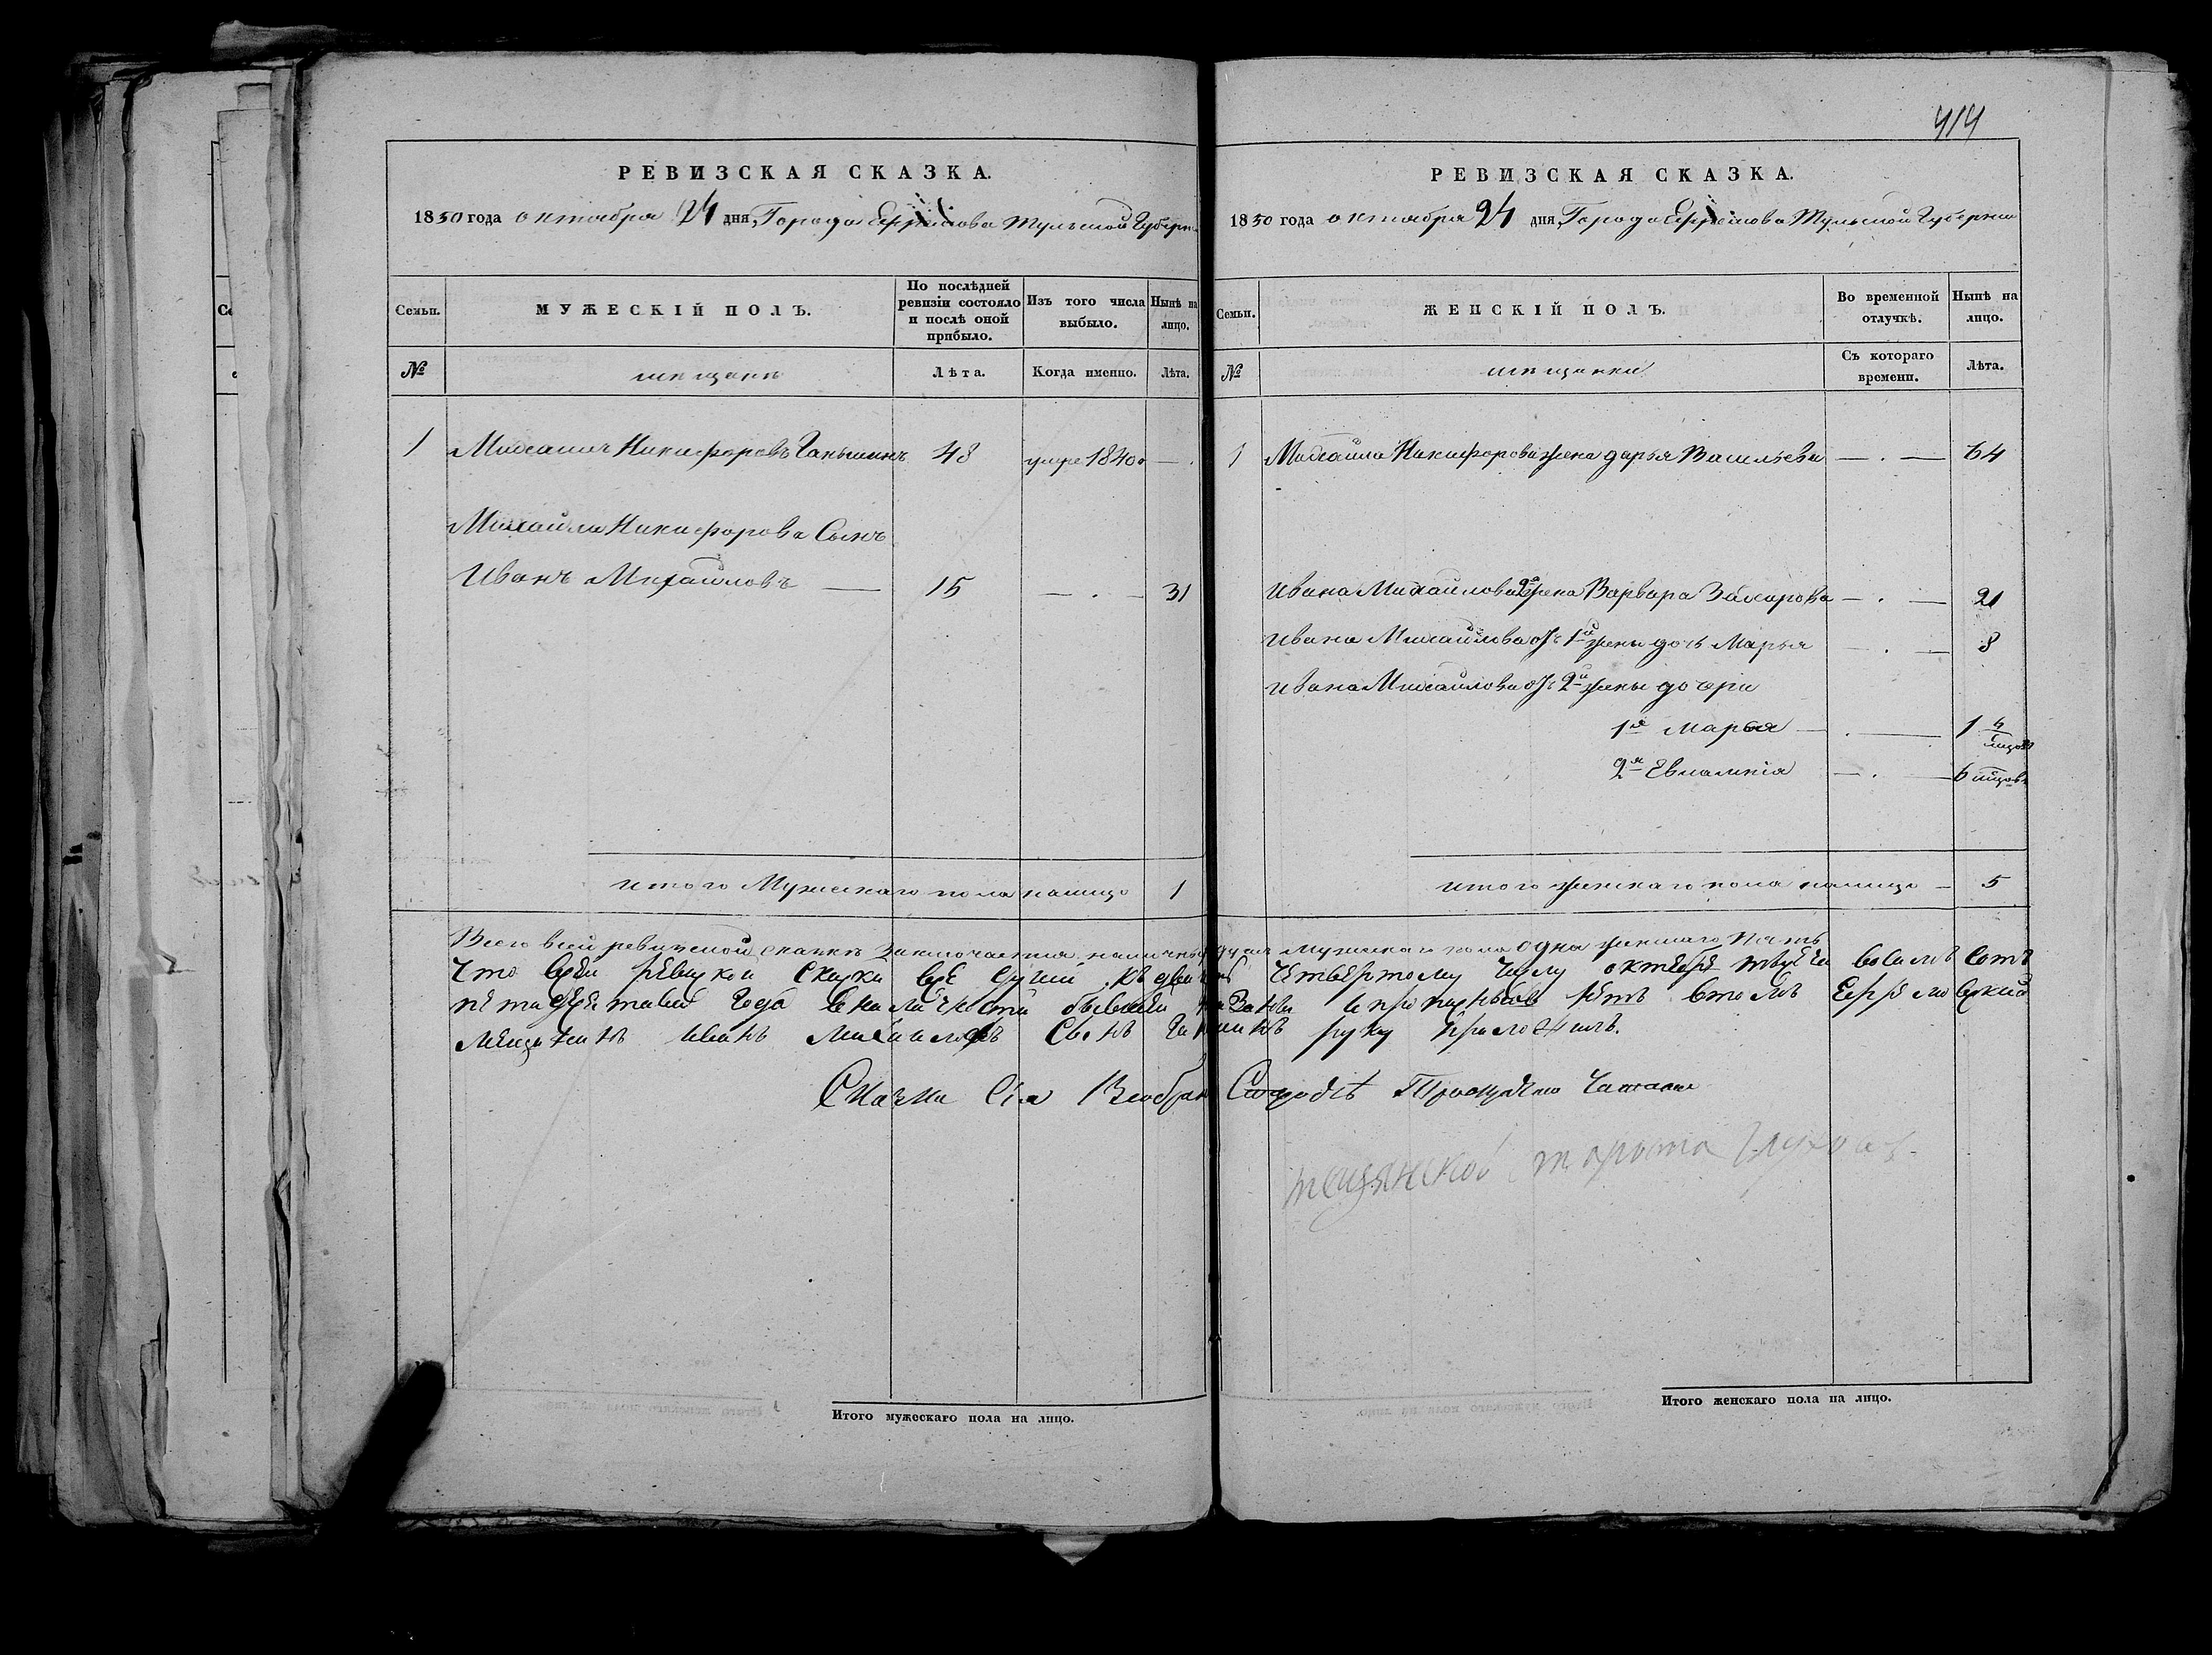 414
РЕВИЗСКАЯ СКАЗКА.
1850 года октября 24 дня, Города Ефремова Тульской Губерн
Семьи.
МУЖЕСКІЙ ПОЛЪ.
По послѣдней ревизіи состояло и послѣ оной прибыло.
Изъ того числа выбыло.
Нынѣ на лицо.
№
мещане
Лѣта.
Когда именно.
Лѣта.
1 Михаилъ Никифоровъ Ганьшинъ 48 умре 1840 — .
Михайлы Никифорова Сынъ
Иванъ Михайловъ — 15 — . — 31
итого Мужескаго пола налицо 1
РЕВИЗСКАЯ СКАЗКА.
1850 года октября 24 дня, Города Ефремова Тульской Губерніи
Семьи.
ЖЕНСКІЙ ПОЛЪ.
Во временной отлучкѣ.
Нынѣ на лицо.
№
мещанки
Съ котораго времени.
Лѣта.
1 Михайлы Никифорова жена дарья Васильева — . — 64
Ивана Михайлова 2я жена Варвара Захарова — . — 21
Ивана Михайлова отъ 1й жены дочь Марья — . — 8
Ивана Михайлова отъ 2й жены дочери
1я Марья — . — 1
2я Евлампія — . — 6
итого женскаго пола налицо — 5
Всего всей ревизской сказкѣ Заключается наличныхъ душъ мужескаго пола одна женскаго Пять
что всей ревиской скаски все души къ двадцать четвертому числу октебре тысеча восемъ сотъ
петидесетаго года вналичности и прописныхъ нетъ втомъ Ефремовский
мещенинъ иванъ михаиловъ сынъ ганшинъ руку приложилъ.
Сказка Сія
мещанской староста
Итого мужескаго пола на лицо.
Итого женскаго пола на лицо.